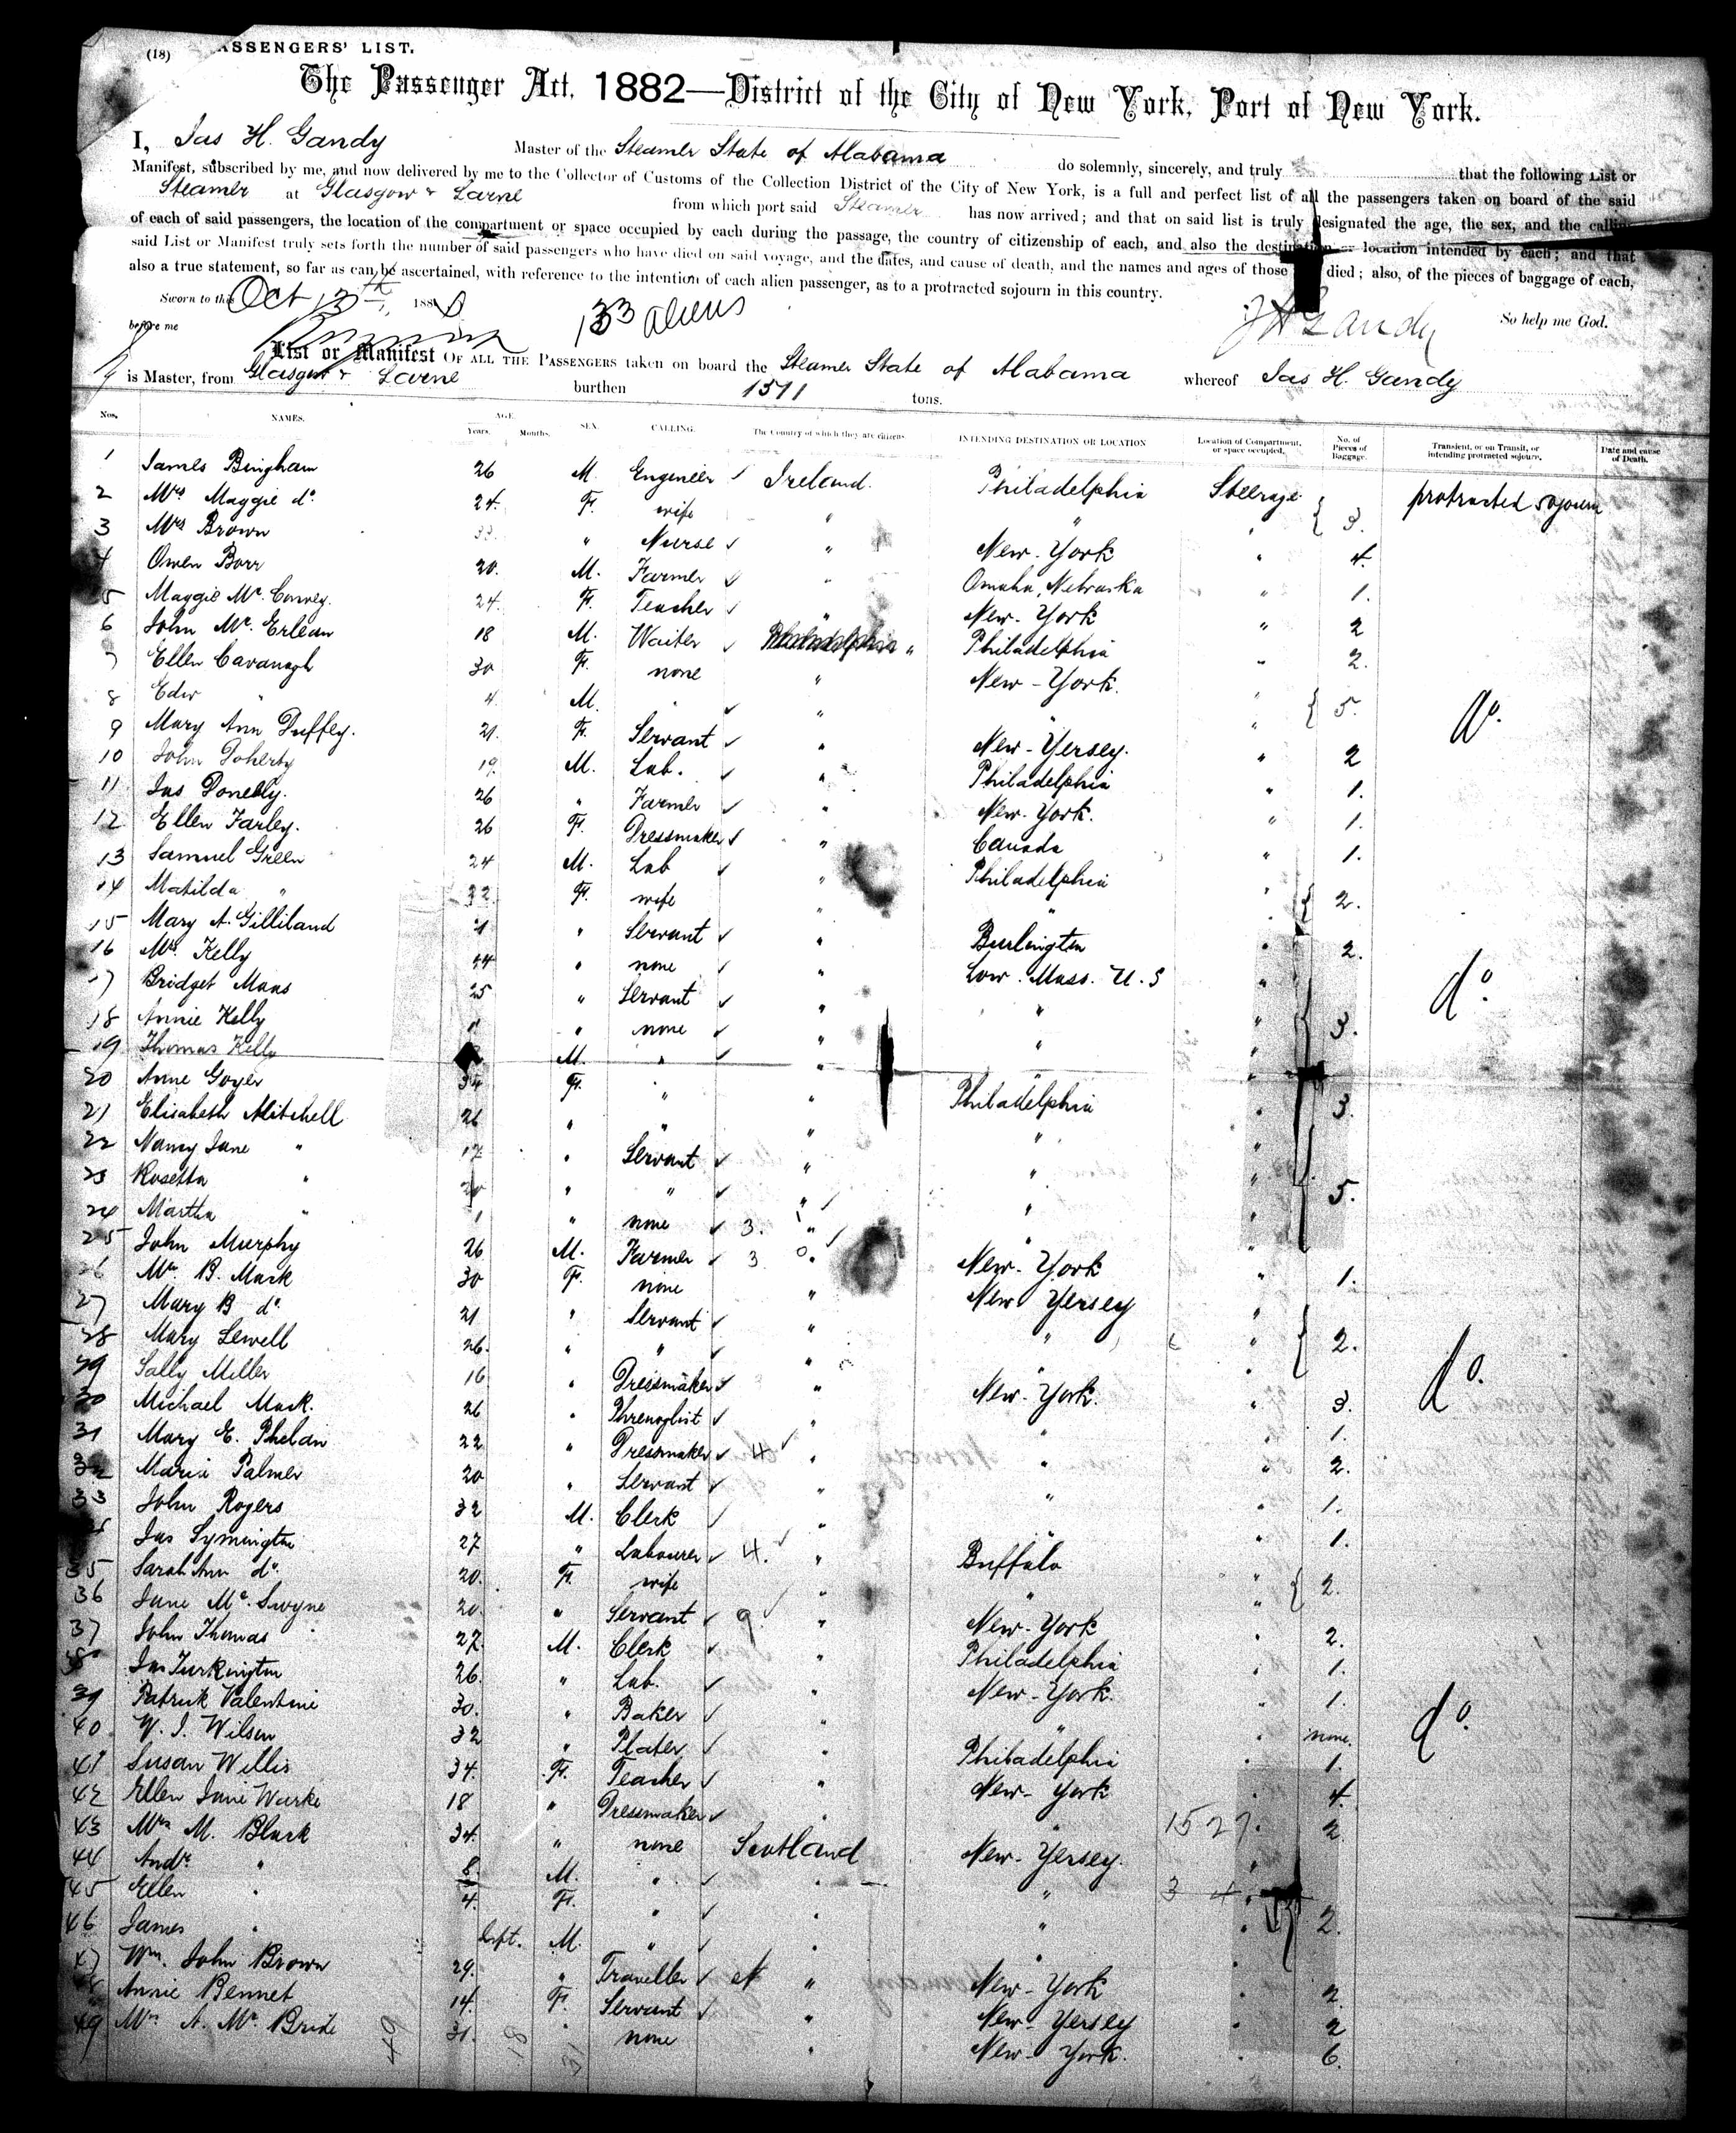 (18) PASSENGERS' LIST.
The Passenger Act, 1882—District of the City of New York, Port of New York.
I, Jas H. Gandy Master of the Steamer State of Alabama do solemnly, sincerely, and truly that the following List or
Manifest, subscribed by me, and now delivered by me to the Collector of Customs of the Collection District of the City of New York, is a full and perfect list of all the passengers taken on board of the said
Steamer at Glasgow & Larne from which port said Steamer has now arrived; and that on said list is truly designated the age, the sex, and the calling
of each of said passengers, the location of the compartment or space occupied by each during the passage, the country of citizenship of each, and also the destination or location intended by each; and that
said List or Manifest truly sets forth the number of said passengers who have died on said voyage, and the dates, and cause of death, and the names and ages of those died; also, of the pieces of baggage of each,
also a true statement, so far as can be ascertained, with reference to the intention of each alien passenger, as to a protracted sojourn in this country.
Sworn to this Oct 13th 188 133 aliens J H Gandy So help me God.
before me
List or Manifest OF ALL THE PASSENGERS taken on board the Steamer State of Alabama whereof Jas H. Gandy
is Master, from Glasgow & Larne burthen 1571 tons.
Nos. NAMES. AGE. Years. Months. SEX. CALLING. The Country of which they are citizens. INTENDING DESTINATION OR LOCATION Location of Compartment, or space occupied. No. of Pieces of Baggage. Transient, or on Transit, or intending protracted sojourn. Date and cause of Death.
1 James Bingham 26 M. Engineer Ireland. Philadelphia Steerage protracted sojourn
2 Mrs Maggie do. 24. F. wife " " " 3.
3 Mrs Brown " Nurse " New-York " 4.
4 Owen Barr 20. M. Farmer " Omaha, Nebraska " 1.
5 Maggie Mc. Convey. 24. F. Teacher " New-York " 2
6 John Mc. Erlean 18 M. Waiter " Philadelphia " 2.
7 Ellen Cavanagh 30 F. none " New-York. "
8 Edw " 4. M. " " " " 5. do.
9 Mary Ann Duffey. 21. F. Servant " New-Yersey. " 2
10 John Doherty 19. M. Lab. " Philadelphia " 1.
11 Jas Donelly. 26 " Farmer " New-York. " 1.
12 Ellen Farley. 26 F. Dressmaker " Canada " 1.
13 Samuel Green 24 M. Lab " Philadelphia "
14 Matilda " F. wife " " " 2.
15 Mary A. Gilliland " Servant " Burlington " 2.
16 Mrs. Kelly 44 " none " Low. Mass. U.S " do.
17 Bridget Maas 25 " Servant " " "
18 Annie Kelly " none " " " 3.
19 Thomas Kelly M. " " "
20 Anne Goyer 34 F. " " Philadelphia " 3.
21 Elisabeth Mitchell 26 " " " " "
22 Nancy Jane " 17. " Servant " " "
23 Rosetta " " " " " " 5.
24 Martha " 1 " none 3. " " "
25 John Murphy 26 M. Farmer 3 " New-York " 1.
26 Mrs. B. Mark 30 F. none " New Yersey "
27 Mary B do. 21 " Servant " " " 2.
28 Mary Sewell 26. " " " "
29 Sally Miller 16 " Dressmaker " New-York. " 3. do.
30 Michael Mark. 26 " Phrenoglist " " " 1.
31 Mary E. Phelan 22 " Dressmaker 4 " " " 2.
32 Maria Palmer 20 " Servant " " " 1.
33 John Rogers 32 M. Clerk " " 1.
Jas Symington 27 " Labourer 4. " Buffalo "
35 Sarah Ann do. 20. F. wife " " " 2.
36 Jane Mc. Swyne 20. " Servant 9 " New-York " 2.
37 John Thomas 27. M. Clerk " Philadelphia " 1.
38 Jas Turkington 26. " Lab. " New-York. " 1.
39 Patrick Valentine 30. " Baker " " " none. do.
40 W. J. Wilson 32 " Plater " Philadelphia " 1.
41 Susan Willis 34. F. Teacher " New-York " 4.
42 Ellen Jane Warke 18 " Dressmaker " " 1527. 2.
43 Mrs M. Black 34. " none Scotland New-Yersey. "
44 Andw. " 8. M. " " " 3 4.
45 Ellen " 4. F. " " " " 2.
46 James " Inft. M. " " " "
47 Wm. John Brown 29. " Traveller " New-York " 2.
Annie Bennet 14. F. Servant " New-Yersey " 2
49 Mrs A. Mc. Bride 31. " none " New-York. " 6.
49 18 31